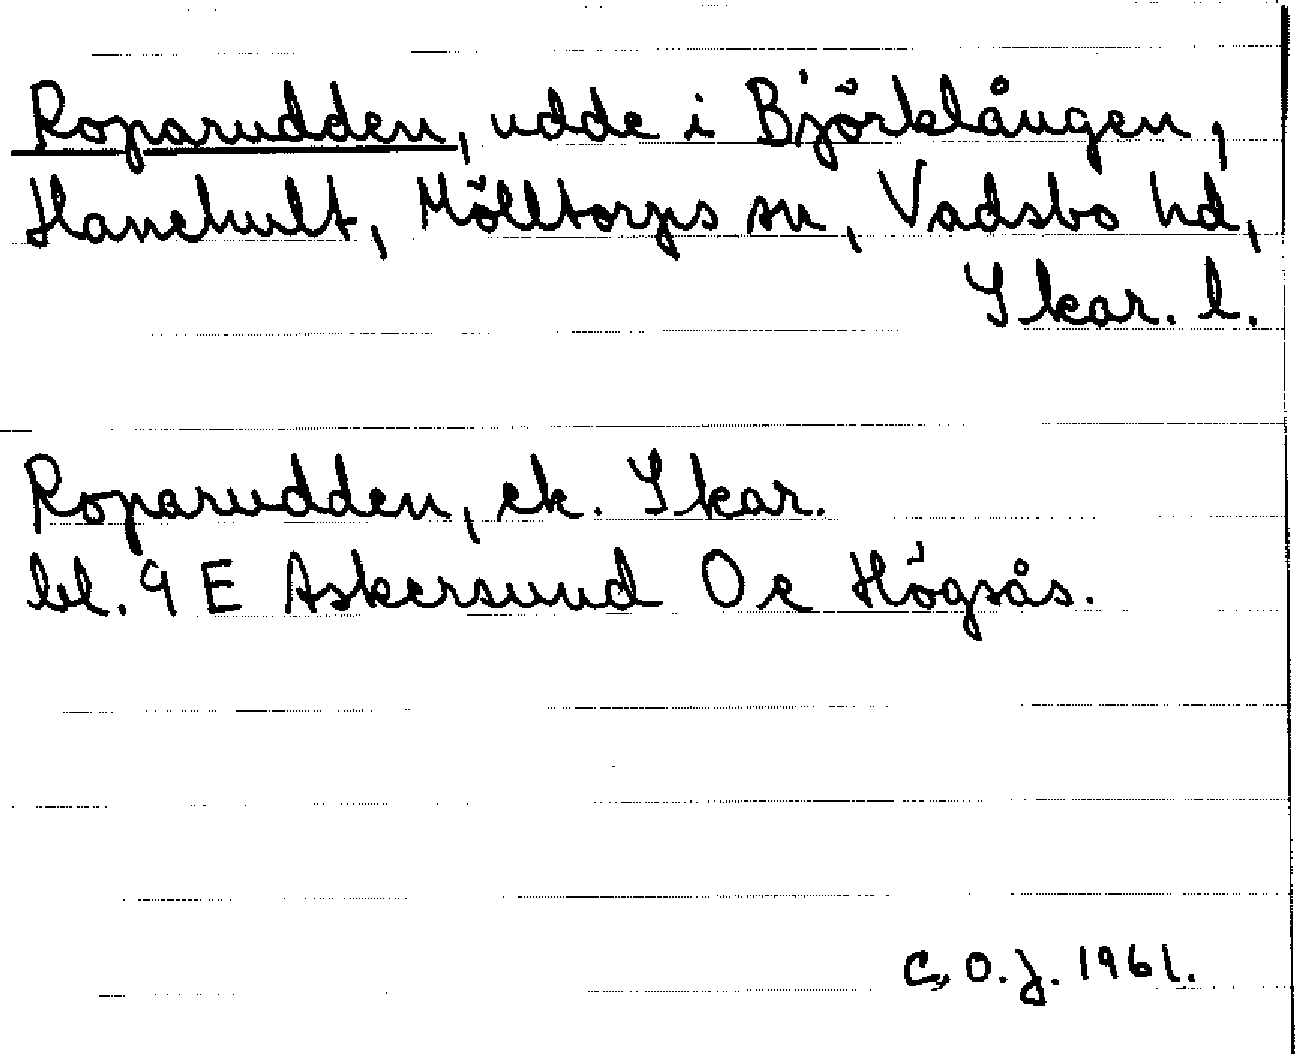 Roparudden, udde i Björklången,
Hanehult, Mölltorps sn, Vadsbo hd,
Skar. l.
Roparudden, ek. Skar.
bl. 9 E Askersund 0 c Högsås.
C. O. J. 1961.